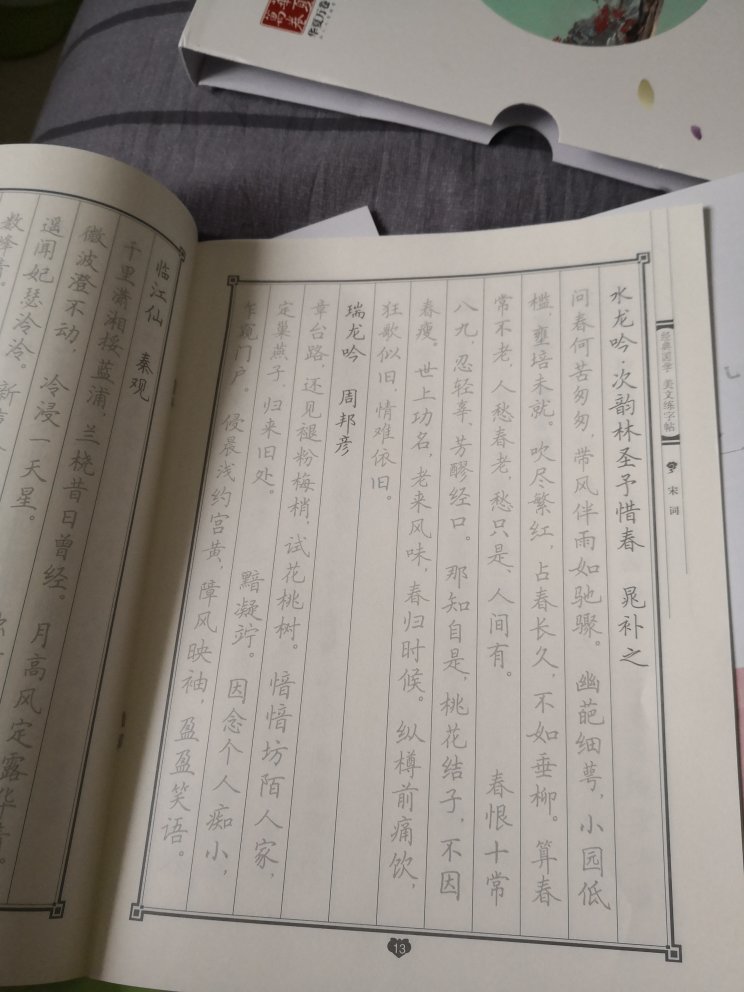 临江仙 秦观
千里潇湘挼蓝浦，兰桡昔日曾经。月高风定露华清。
微波澄不动，冷浸一天星。
遥闻妃瑟泠泠。新
数峰青。
水龙吟·次韵林圣予惜春 晁补之
问春何苦匆匆，带风伴雨如驰骤。幽葩细萼，小园低
槛，壅培未就。吹尽繁红，占春长久，不如垂柳。算春
常不老，人愁春老，愁只是、人间有。 春恨十常
八九，忍轻辜、芳醪经口。那知自是、桃花结子，不因
春瘦。世上功名，老来风味，春归时候。纵樽前痛饮，
狂歌似旧，情难依旧。
瑞龙吟 周邦彦
章台路，还见褪粉梅梢，试花桃树。愔愔坊陌人家，
定巢燕子，归来旧处。 黯凝竚。因念个人痴小，
乍窥门户。侵晨浅约宫黄，障风映袖，盈盈笑语。
经典国学 美文练字帖
宋词
13
华夏万卷